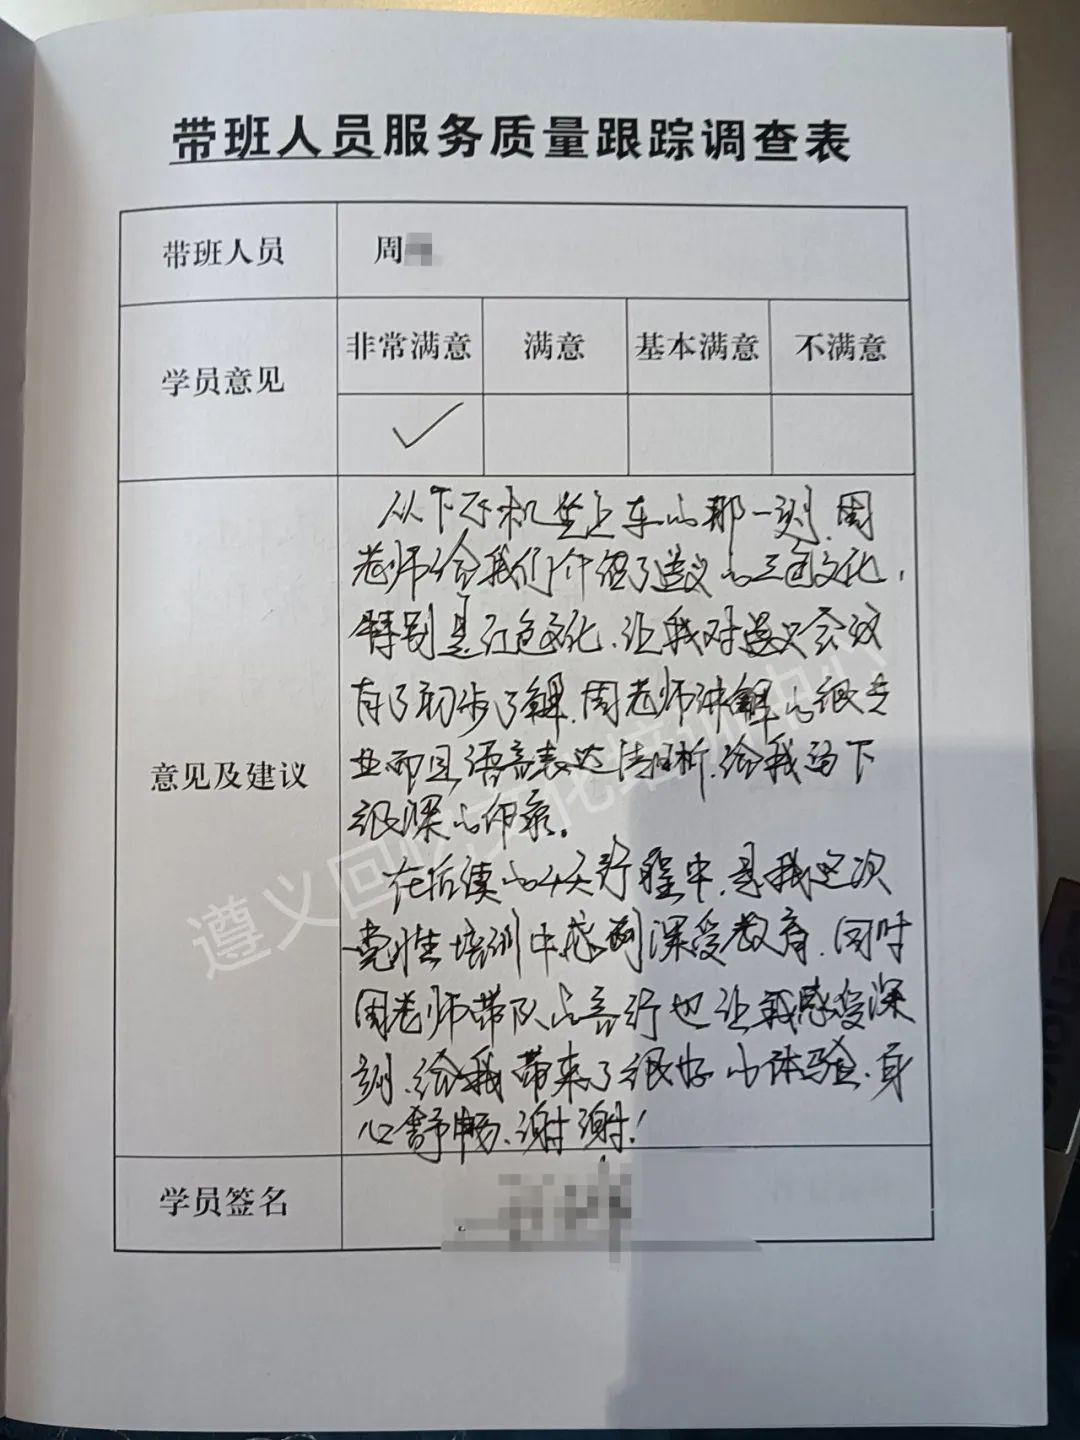 带班人员服务质量跟踪调查表
带班人员 周
学员意见 非常满意 满意 基本满意 不满意
✓
意见及建议
从下飞机坐上车的那一刻，周
老师给我们介绍了遵义的三色文化，
特别是红色文化，让我对遵义会议
有了初步了解，周老师讲解的很专
业而且语言表达清晰，给我留下
很深的印象。
在后续的4天行程中，是我这次
党性培训中感到深受教育，同时
周老师带队的言行也让我感受深
刻，给我带来了很好的体验，身
心舒畅、谢谢！
学员签名
遵义回忆文化培训中心